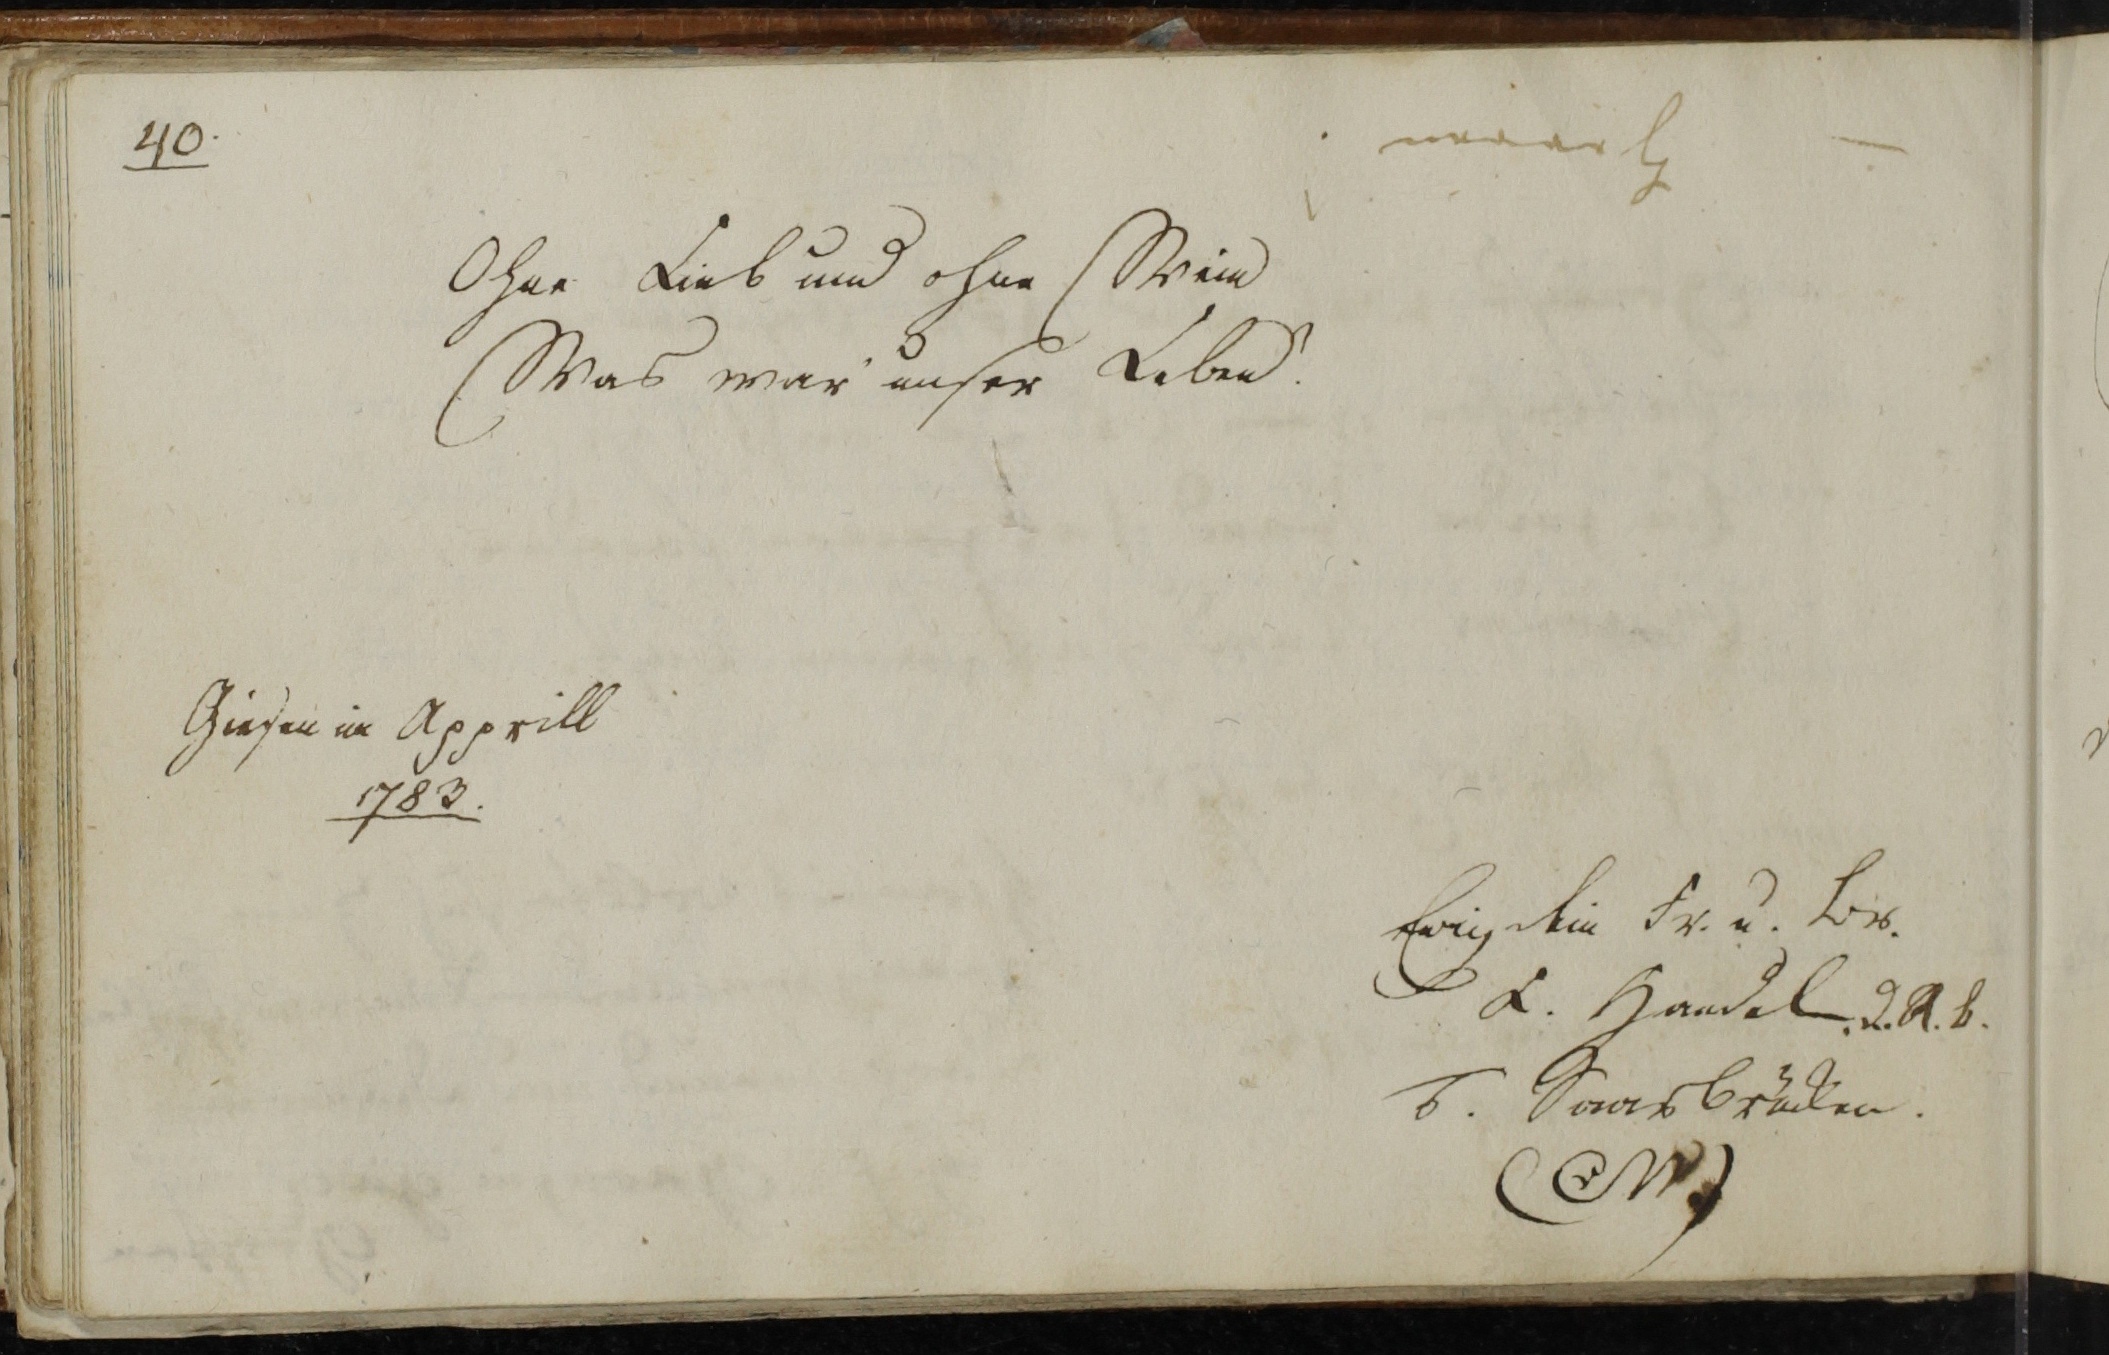 40.
Ohne Lieb und ohne Wein
Was wär unser Leben!
Giesen im Apprill
1783.
Ewig dein Fr. u. Br.
L. Handel. d. R. b.
v. Saarbrücken.